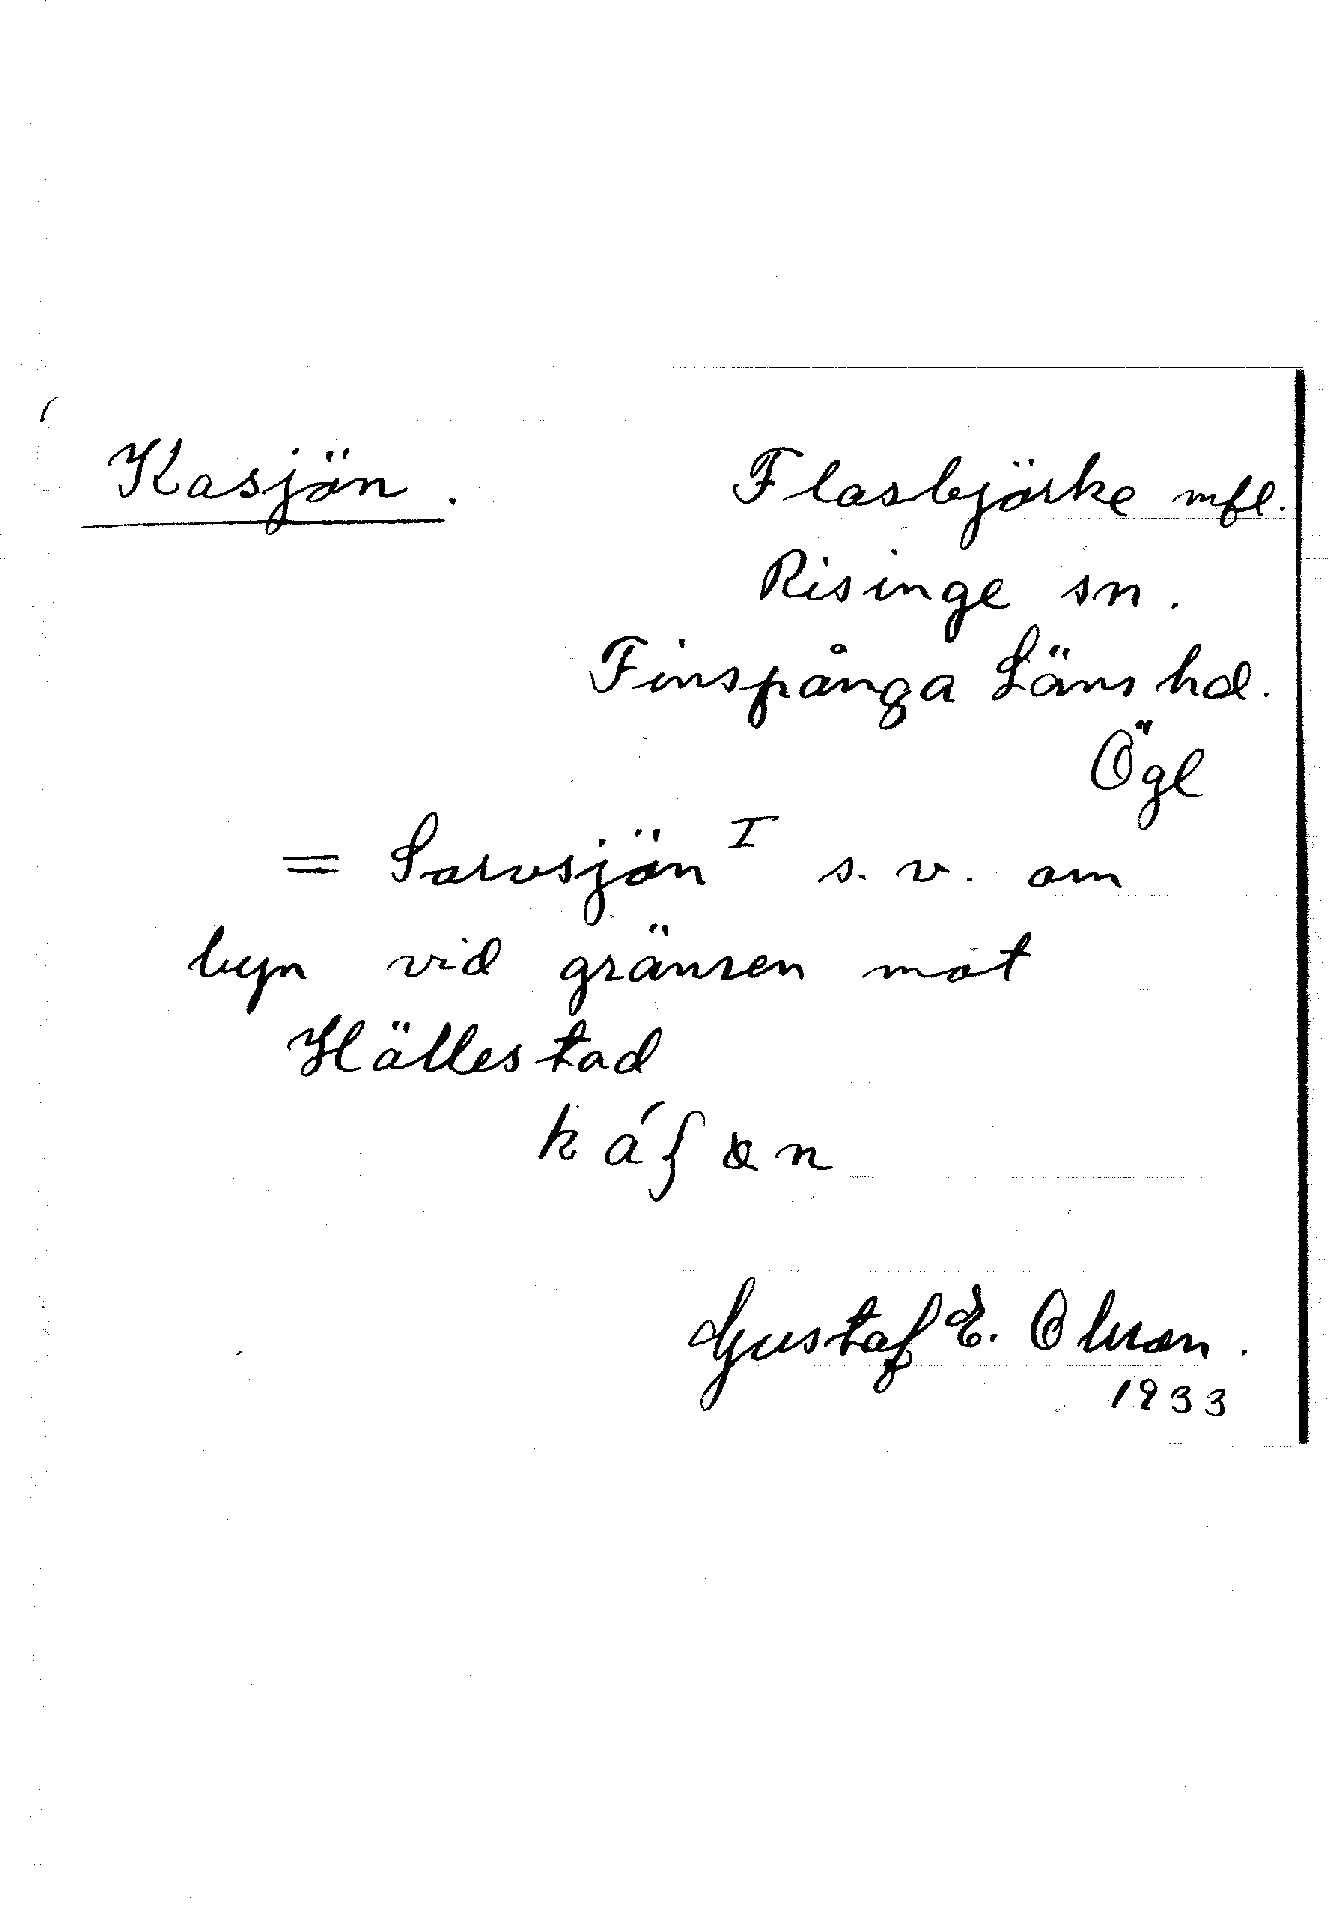 Kasjön. Flasbjörke mfl.
Risinge sn.
Finspånga Läns hd.
Ögl
= Sarvsjön I s. v. om
byn vid gränsen mot
Hällestad
Gustaf E. Olsson.
1933